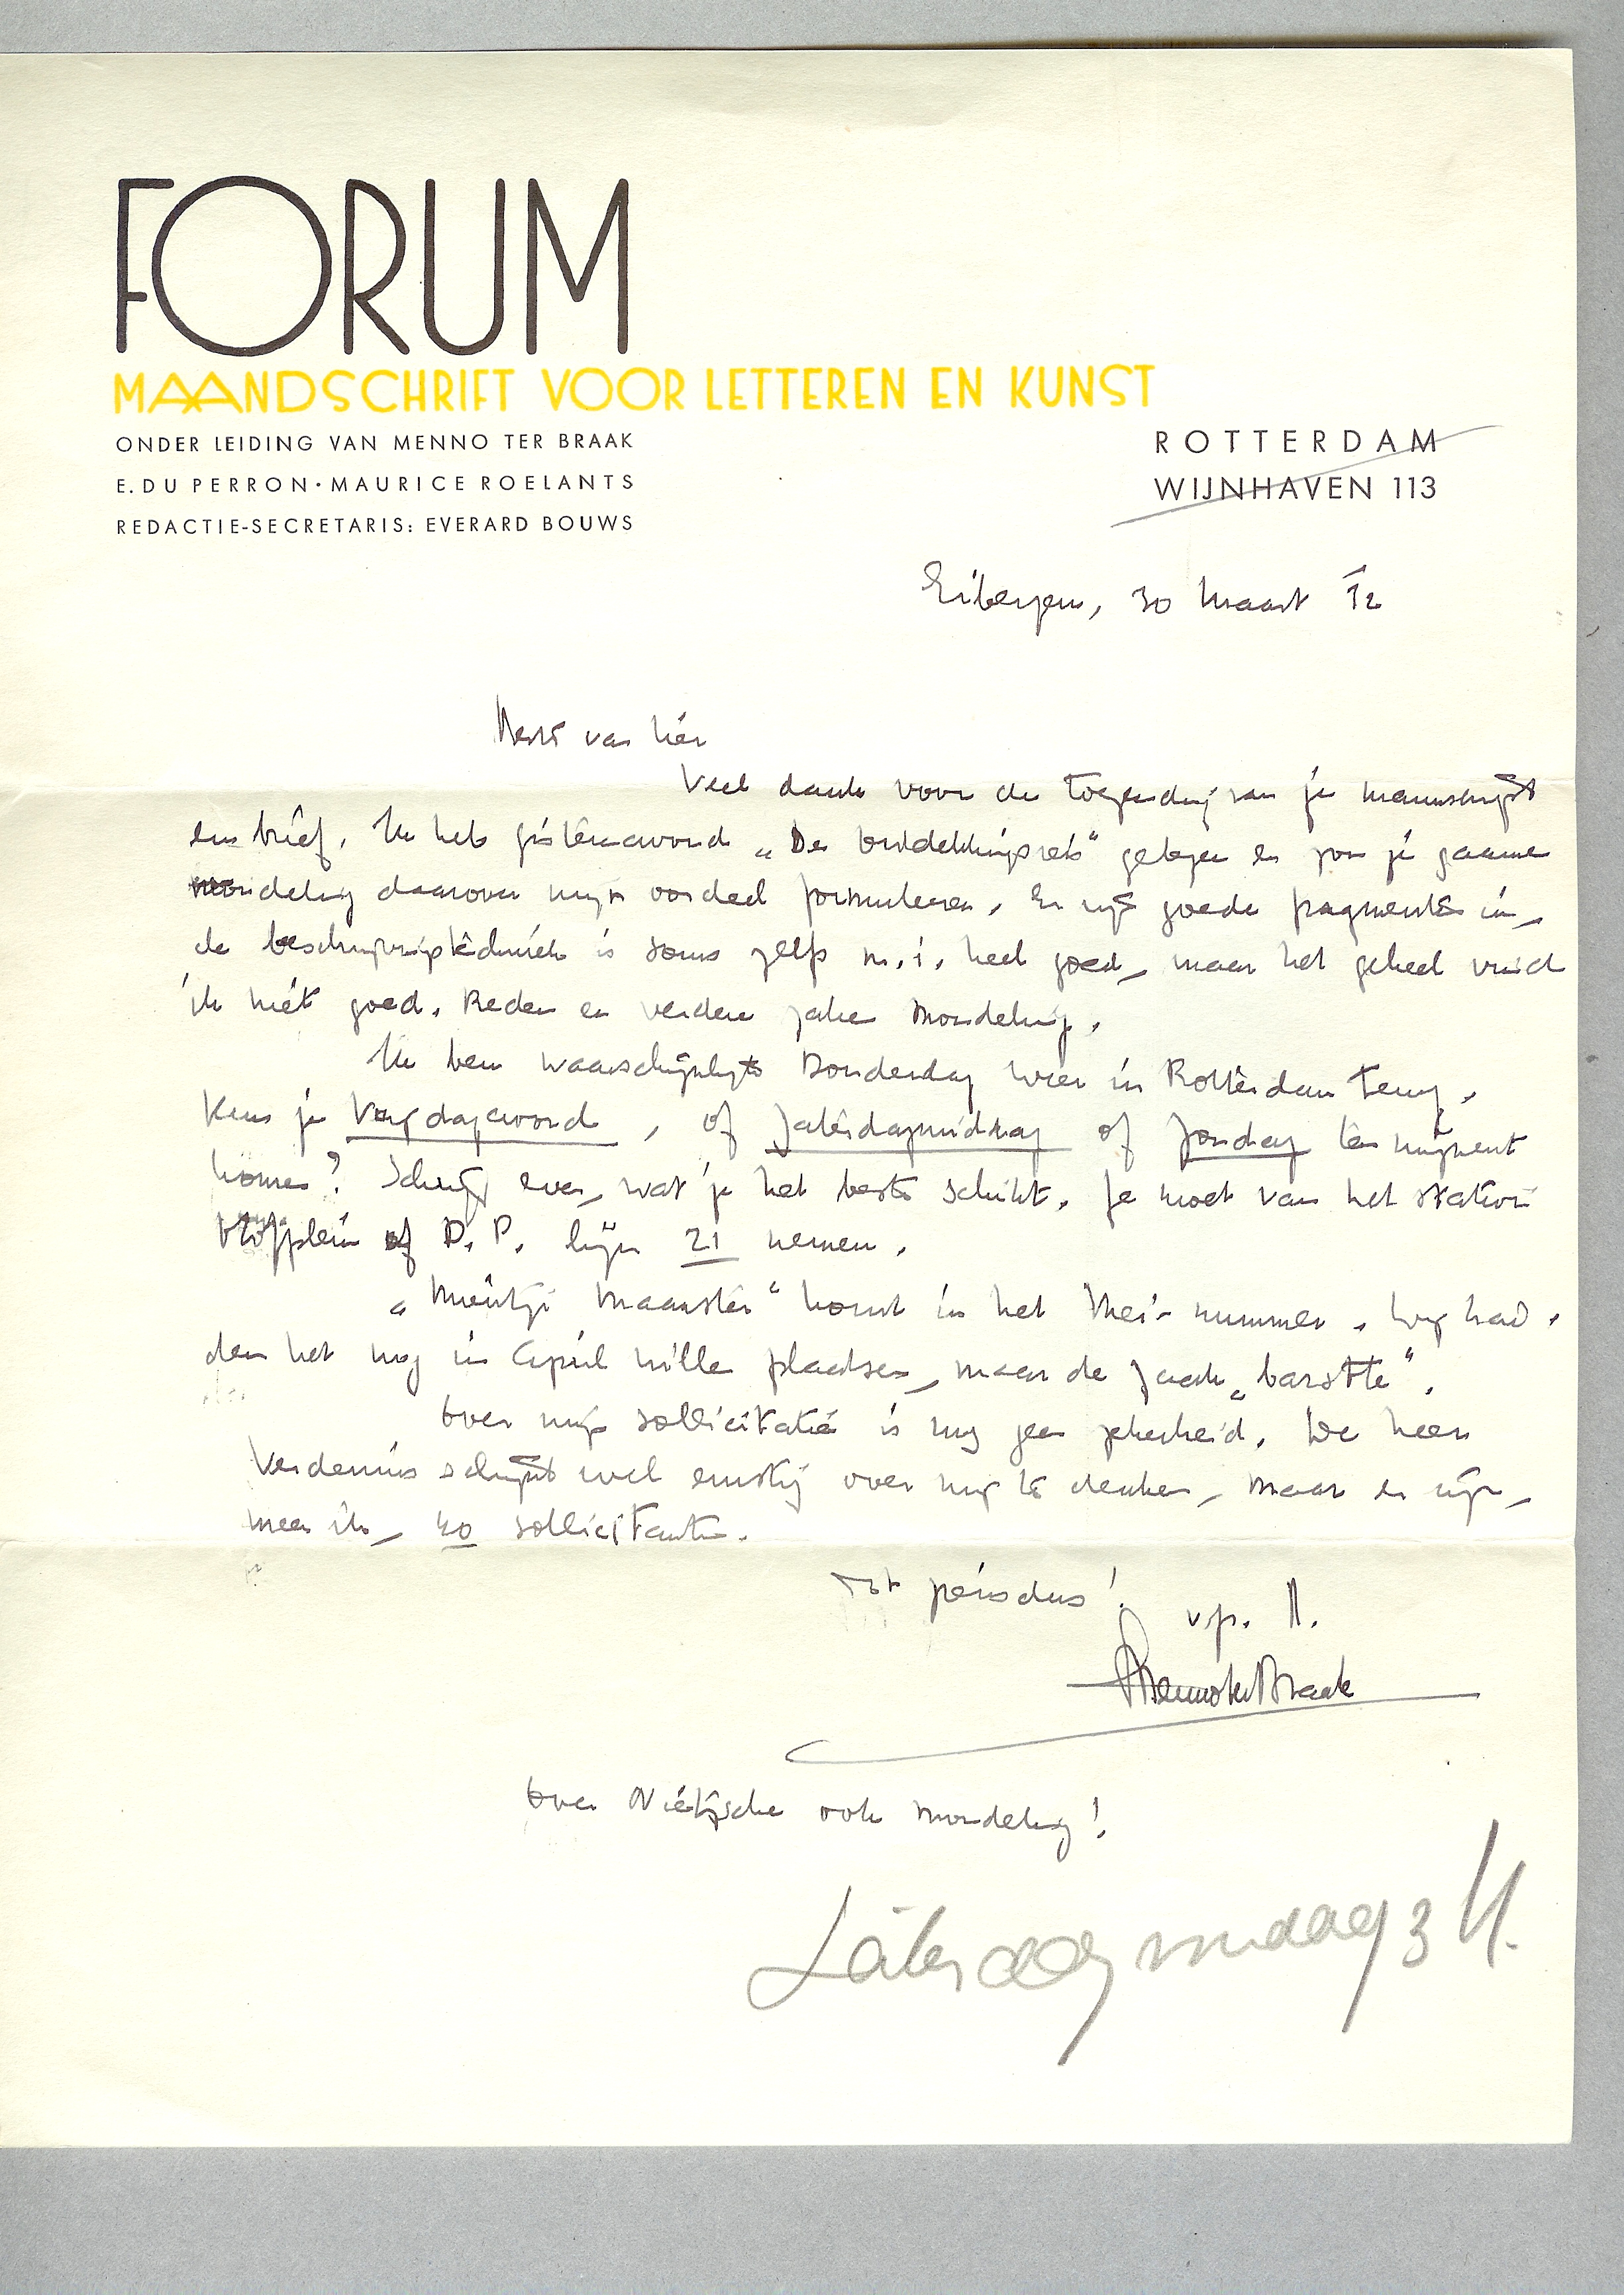 FORUM
MAANDSCHRIFT VOOR LETTEREN EN KUNST
ONDER LEIDING VAN MENNO TER BRAAK
E. DU PERRON · MAURICE ROELANTS
REDACTIE-SECRETARIS: EVERARD BOUWS
ROTTERDAM
WIJNHAVEN 113
Eibergen, 30 Maart 32
Beste van Lier
Veel dank voor de toezending van je manuscript
en brief. Ik heb gisterenavond „De ontdekkingsreis" gelezen en zou je gaarne
mondeling daarover mijn oordeel formuleeren. Er zijn goede fragmenten in,
de beschrijvingstechniek is soms zelfs m.i. heel goed, maar het geheel vind
ik niet goed. Reden en verdere zaken mondeling.
Ik ben waarschijnlijk Donderdag weer in Rotterdam terug.
Kun je Vrijdagavond, of Zaterdagmiddag of Zondag te mijnent
komen? Schrijf even, wat je het beste schikt. Je moet van het station
Hofplein of D.P. lijn 21 nemen.
„Mientje Maanster" komt in het Mei-nummer. Wij had-
den het nog in April willen plaatsen, maar de zaak „barstte".
Over mijn sollicitatie is nog geen zekerheid. De heer
Verdenius schijnt wel ernstig over mij te denken, maar er zijn,
meen ik, 40 sollicitanten.
Tot ziens dus! vr. gr.
Menno ter Braak
Over Nietzsche ook mondeling!
Zaterdagmiddag 3 U.